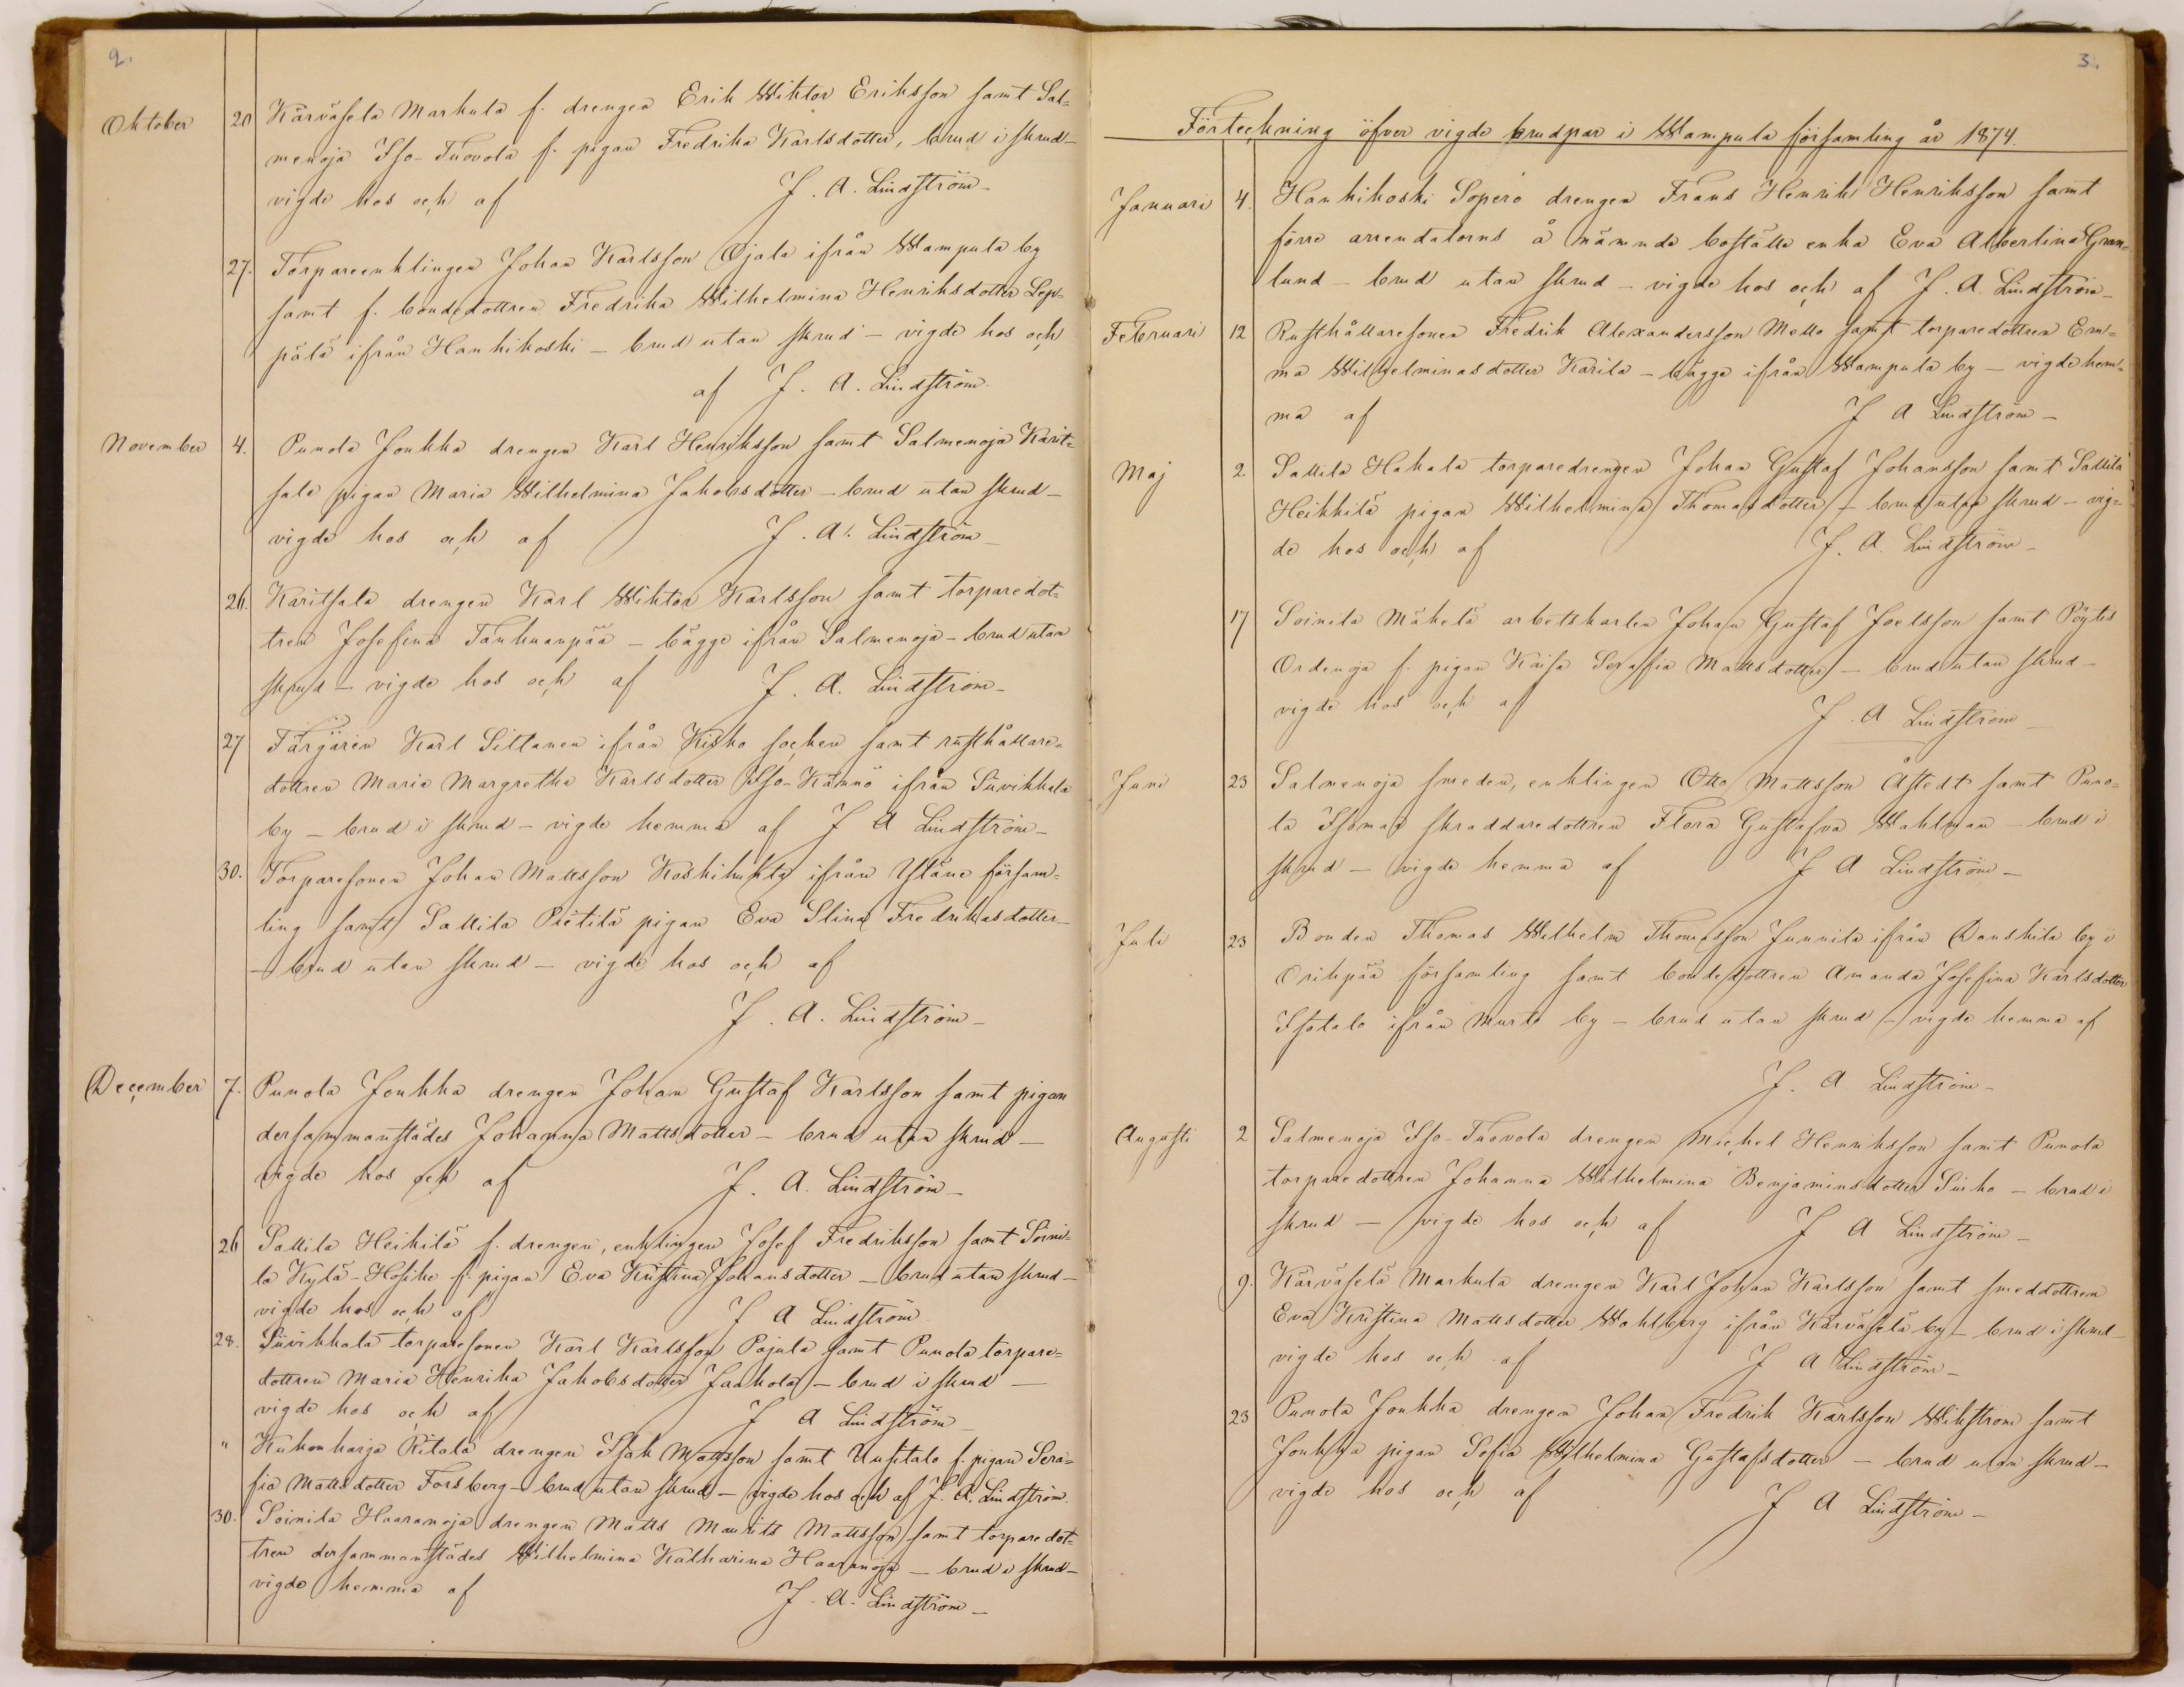 2.
Oktober 20 Kärväselä Markula f. drengen Erik Wiktor Eriksson samt Sal=
menoja Iso-Tuovola f. pigan Fredrika Karlsdotter, brud i skrud–
vigde hos och af J. A. Lindström–
27. Torpareenklingen Johan Karlsson Ojala ifrån Wampula by
samt f. bondedottren Fredrika Wilhelmina Henriksdotter Lep=
pälä ifrån Hankikoski – brud utan skrud – vigde hos och
af J. A. Lindström.
November 4. Punola Jonkka drengen Karl Henriksson samt Salmenoja Karit=
sala pigan Maria Wilhelmina Jakobsdotter – brud utan skrud –
vigde hos och af J. A. Lindström –
26. Karitsala drengen Karl Wiktor Karlsson samt torparedot=
tren Josefina Tanhuanpää – bägge ifrån Salmenoja – brud utan
skrud – vigde hos och af J. A. Lindström –
27 Färgaren Karl Sillanen ifrån Kisko socken samt rusthållare=
dottren Maria Margretha Karlsdotter Iso-Kännö ifrån Suvikkala
by – brud i skrud – vigde hemma af J A Lindström –
30. Torparesonen Johan Mattsson Koskihuhta ifrån Yläne försam=
ling samt Sallila Pietilä pigan Eva Stina Fredriksdotter –
– brud utan skrud – vigde hos och af
J. A. Lindström –
December 7. Punola Jonkka drengen Johan Gustaf Karlsson samt pigan
dersammanstädes Johanna Mattsdotter – brud utan skrud –
vigde hos och af J. A. Lindström –
26 Sallila Heikilä f. drengen, enklingen Josef Fredriksson samt Soini=
la Kylä-Hosike f. pigan Eva Kristina Johansdotter – brud utan skrud –
vigde hos och af J A Lindström
28. Suvikkala torparesonen Karl Karlsson Pajula samt Punola torpare=
dottren Maria Henrika Jakobsdotter Jaakola – brud i skrud –
vigde hos och af J A Lindström
" Kukonharja Ritala drengen Isak Mattsson samt Uusitalo f. pigan Sera=
fia Mattsdotter Forsberg – brud utan skrud – vigde hos och af J. A. Lindström.
30. Soinila Haaranoja drengen Matts Maurits Mattsson samt torparedot=
tren dersammanstädes Wilhelmina Katharina Haaranoja – brud i skrud –
vigde hemma af J. A. Lindström –
3.
Förteckning öfver vigde brudpar i Wampula församling år 1874.
Januari 4. Hankikoski Sopero drengen Frans Henrik Henriksson samt
förre arrendatorns å nämnde boställe enka Eva Albertina Gran=
lund – brud utan skrud – vigde hos och af J. A. Lindström –
Februari 12 Rusthållaresonen Fredrik Alexandersson Mello samt torparedottren Em=
ma Wilhelminasdotter Karila – bägge ifrån Wampula by – vigde hem=
ma af J A Lindström –
Maj 2 Sallila Hakala torparedrengen Johan Gustaf Johansson samt Sallila
Heikkilä pigan Wilhelmina Thomasdotter – brud utan skrud – vig=
de hos och af J. A. Lindström –
17 Soinila Mäkelä arbetskarlen Johan Gustaf Joelsson samt Pöytis
Ordenoja f. pigan Kaisa Serafia Mattsdotter – brud utan skrud –
vigde hos och af J. A Lindström –
Juni 23 Salmenoja smeden, enklingen Otto Mattsson Åstedt samt Puno=
la Isomaa skraddaredottren Flora Gustafva Wahlman – brud i
skrud – vigde hemma af J A Lindström –
Juli 23 Bonden Thomas Wilhelm Thomasson Junnila ifrån Danskila by i
Orihpää församling samt bondedottren Amanda Josefina Karlsdotter
Isotalo ifrån Murto by – brud utan skrud – vigde hemma af
J. A Lindström –
Augusti 2 Salmenoja Iso-Tuovola drengen Michel Henriksson samt Punola
torparedottren Johanna Wilhelmina Benjaminsdotter Suiko – brud i
skrud – vigde hos och af J A Lindström –
9. Kärväselä Markula drengen Karl Johan Karlsson samt smeddottren
Eva Kristina Mattsdotter Wahlberg ifrån Kärväselä by – brud i skrud –
vigde hos och af J A Lindström –
23 Punola Jonkka drengen Johan Fredrik Karlsson Wikström samt
Jonkka pigan Sofia Wilhelmina Gustafsdotter – brud utan skrud –
vigde hos och af J A Lindström –